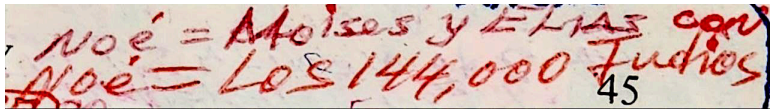 Noé = Moises y ELIAS con
Noé = Los 144,000 Judios
45